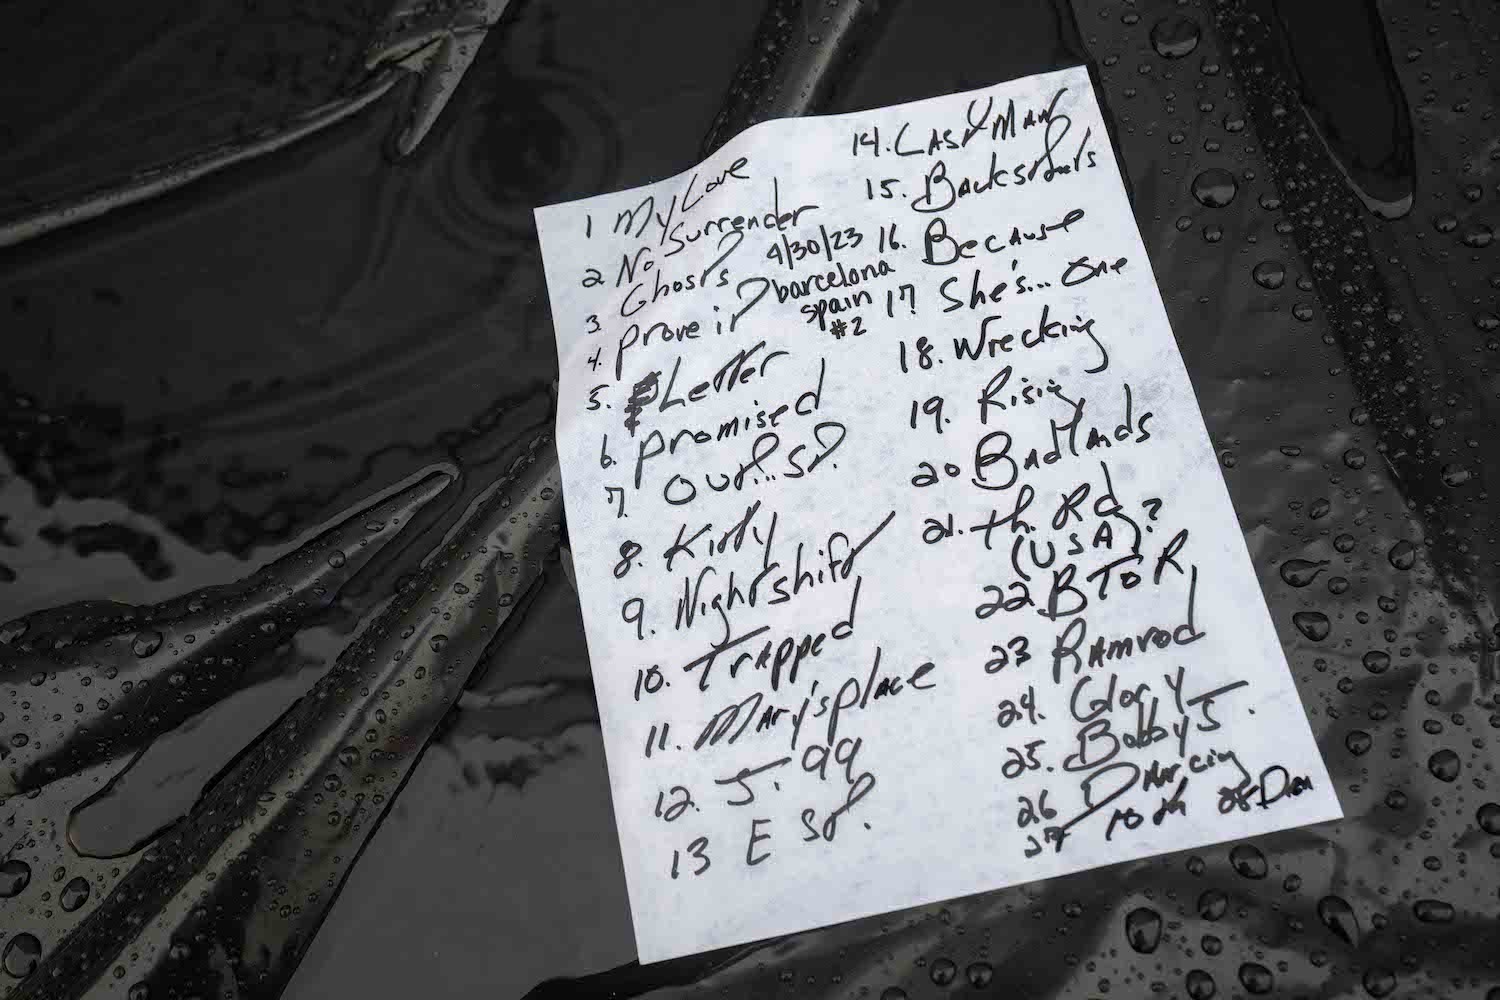 1 My Love
2 No Surrender
3. Ghosts
4. prove it
5. Letter
6. promised
7. Out..St.
8. Kitty
9. Nightshift
10. Trapped
11. Mary's place
12. J. 99
13 E St.
4/30/23
barcelona
spain
#2
14. Last Man
15. Backstreets
16. Because
17 She's... One
18. Wrecking
19. Rising
20 Badlands
21. th. Rd
(USA)?
22 BTOR
23 Ramrod
24. Glory
25. Bobby J.
26 Dancing
27 10th 28